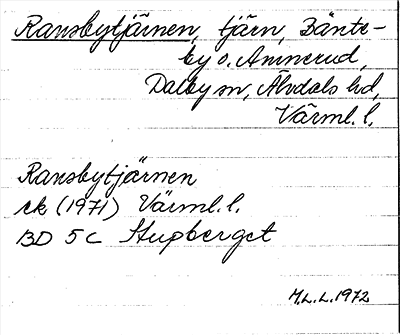 Ransbytjärnen, tjärn, Bänte-
by o. Amnerud,
Dalby sn, Älvdals hd,
Värml. l.
Ransbytjärnen
rk (1971) Värml. l.
BD 5C Stupberget
M.L.L. 1972